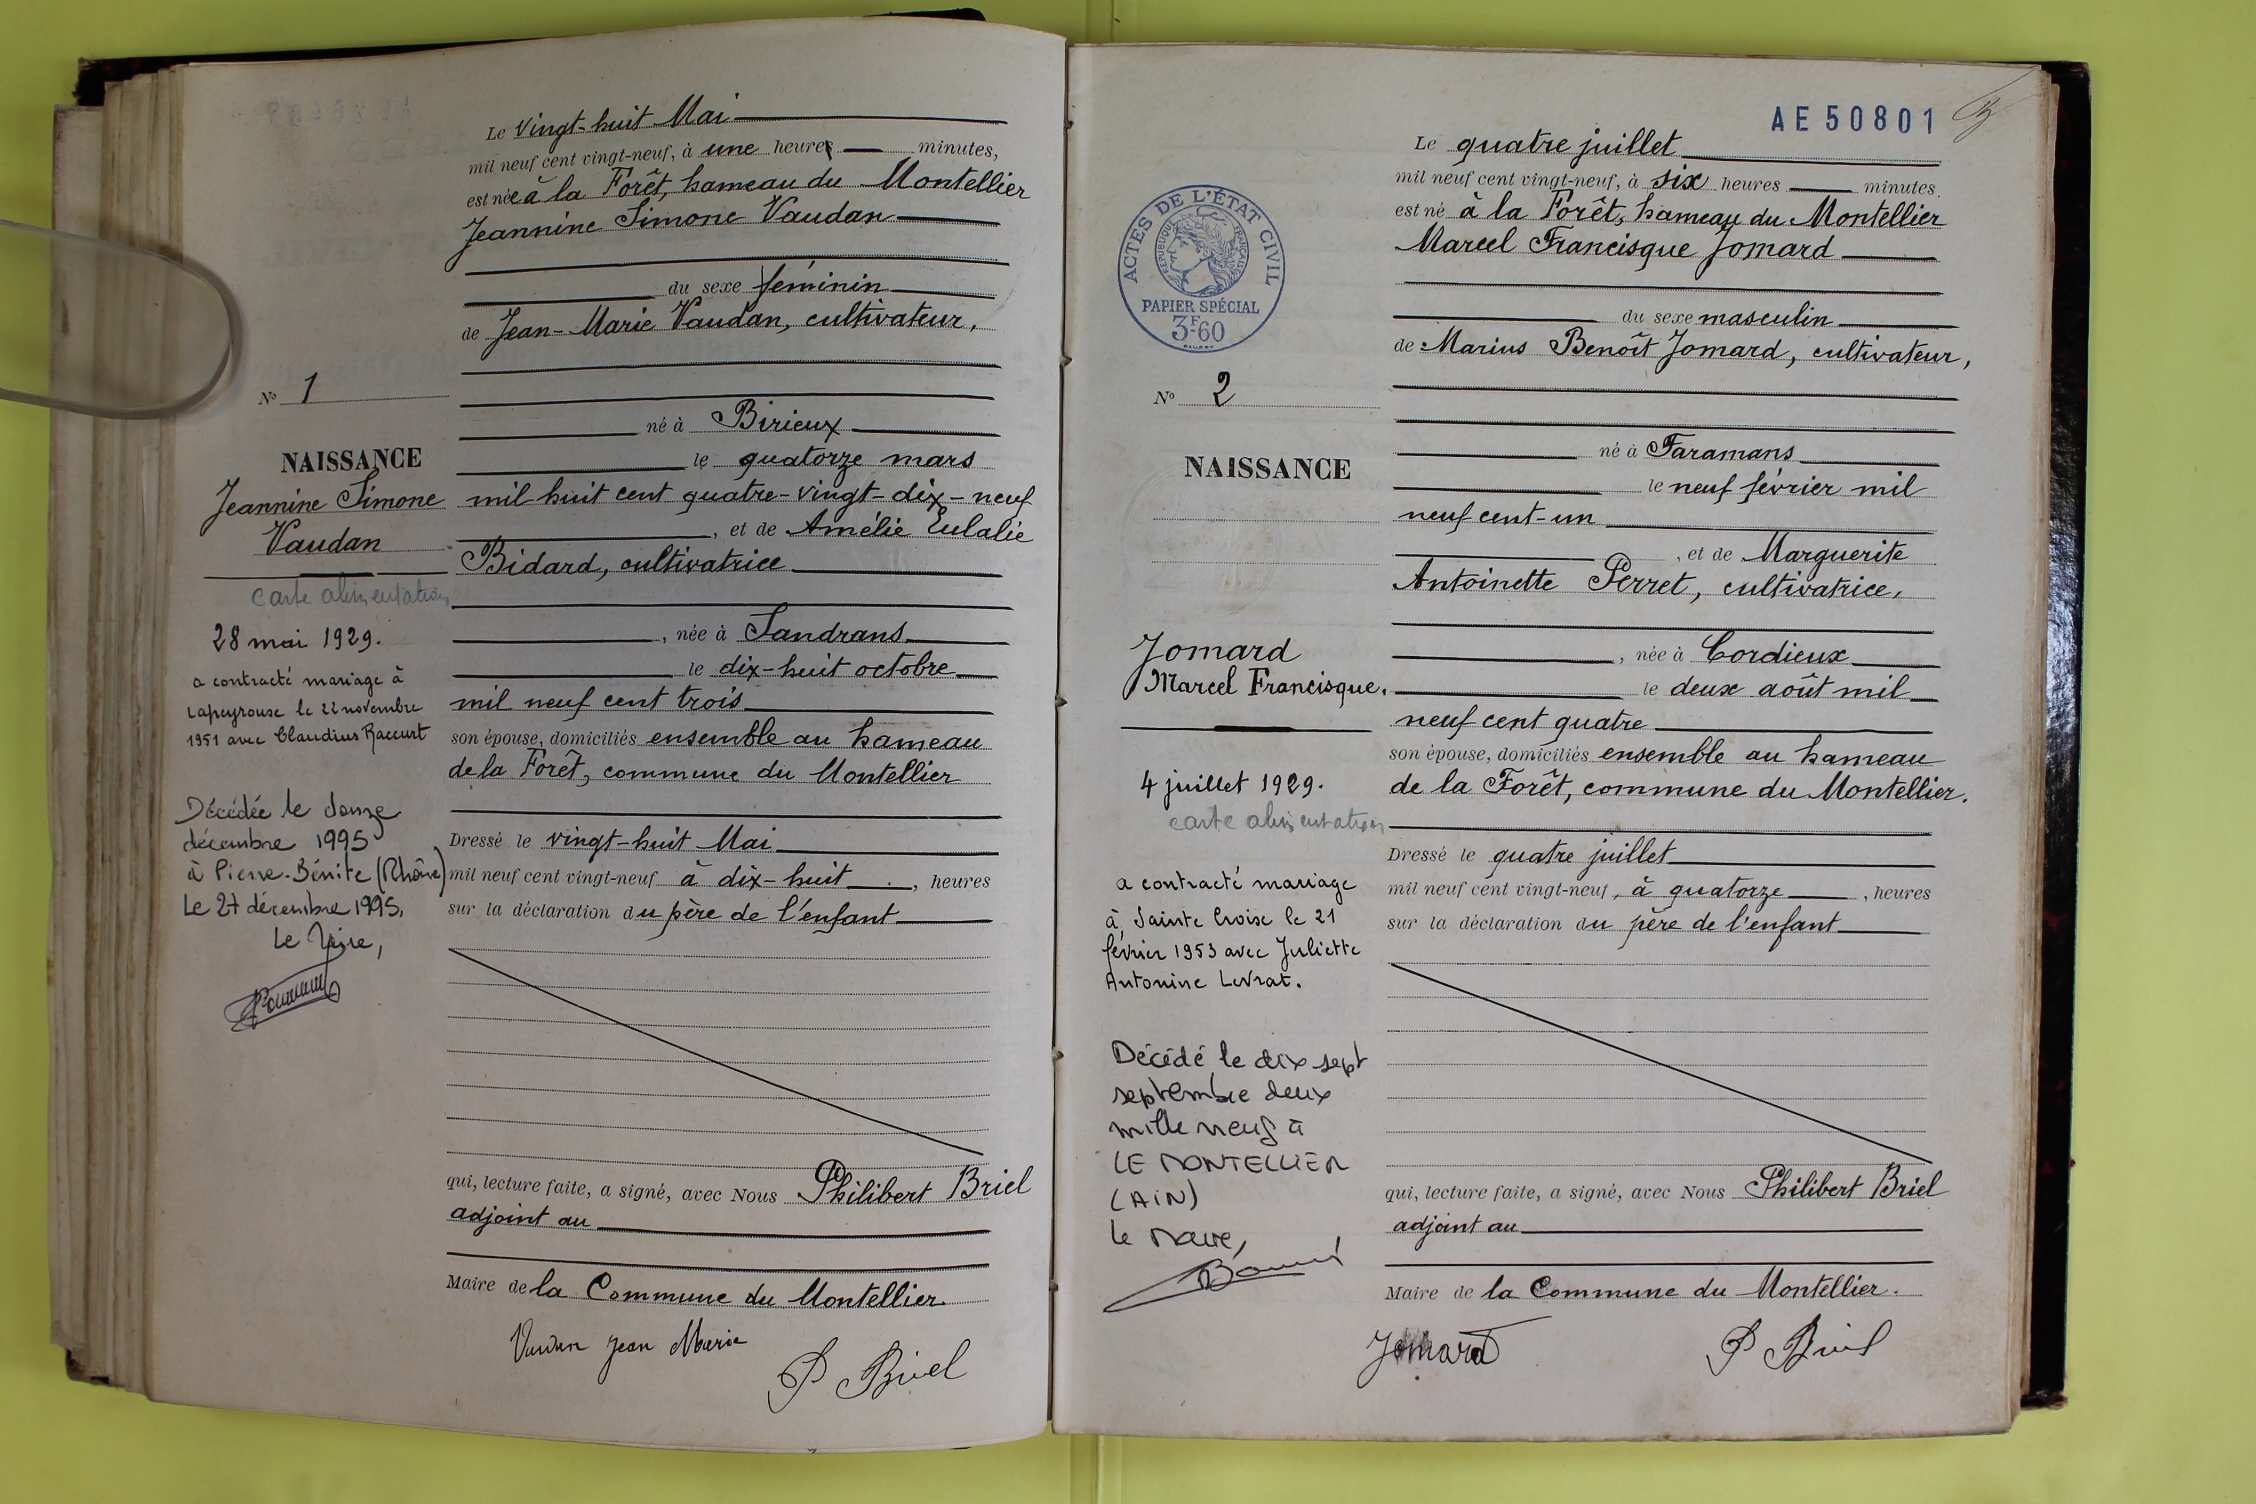 Le vingt-huit Mai
mil neuf cent vingt-neuf, à une heure minutes,
est née à la Forêt, hameau du Montellier
Jeannine Simone Vaudan
du sexe féminin
de Jean-Marie Vaudan, cultivateur,
N° 1
né à Birieux
NAISSANCE
le quatorze mars
Jeannine Simone
Vaudan
mil huit cent quatre-vingt-dix-neuf
, et de Amélie Eulalie
Bidard, cultivatrice
carte alimentation
28 mai 1929.
a contracté mariage à
Lapeyrouse le 22 novembre
1951 avec Claudius Raccurt
Décédée le
décembre 1995
à Pierre-Bénite (Rhône)
Le 27 décembre 1995,
Le Maire,
, née à Sandrans
le dix-huit octobre
mil neuf cent trois
son épouse, domiciliés ensemble au hameau
de la Forêt, commune du Montellier
Dressé le vingt-huit Mai
mil neuf cent vingt-neuf à dix-huit , heures
sur la déclaration du père de l'enfant
qui, lecture faite, a signé, avec Nous Philibert Briel
adjoint au
Maire de la Commune du Montellier
Vaudan Jean Marie
P Briel
AE 50801
Le quatre juillet
mil neuf cent vingt-neuf, à six heures minutes
est né à la Forêt, hameau du Montellier
Marcel Francisque Jomard
ACTES DE L'ÉTAT CIVIL
RÉPUBLIQUE FRANÇAISE
PAPIER SPÉCIAL
3F-60
du sexe masculin
de Marius Benoît Jomard, cultivateur,
N° 2
NAISSANCE
né à Faramans
le neuf février mil
neuf cent-un
, et de Marguerite
Antoinette Perret, cultivatrice,
Jomard
Marcel Francisque.
4 juillet 1929.
carte alimentation
a contracté mariage
à Sainte Croix le 21
février 1953 avec Juliette
Antonine Levrat.
Décédé le dix sept
septembre deux
mille neuf à
LE MONTELLIER
(AIN)
Le Maire,
, née à Cordieux
le deux août mil
neuf cent quatre
son épouse, domiciliés ensemble au hameau
de la Forêt, commune du Montellier.
Dressé le quatre juillet
mil neuf cent vingt-neuf, à quatorze , heures
sur la déclaration du père de l'enfant
qui, lecture faite, a signé, avec Nous Philibert Briel
adjoint au
Maire de la Commune du Montellier.
Jomard
P Briel